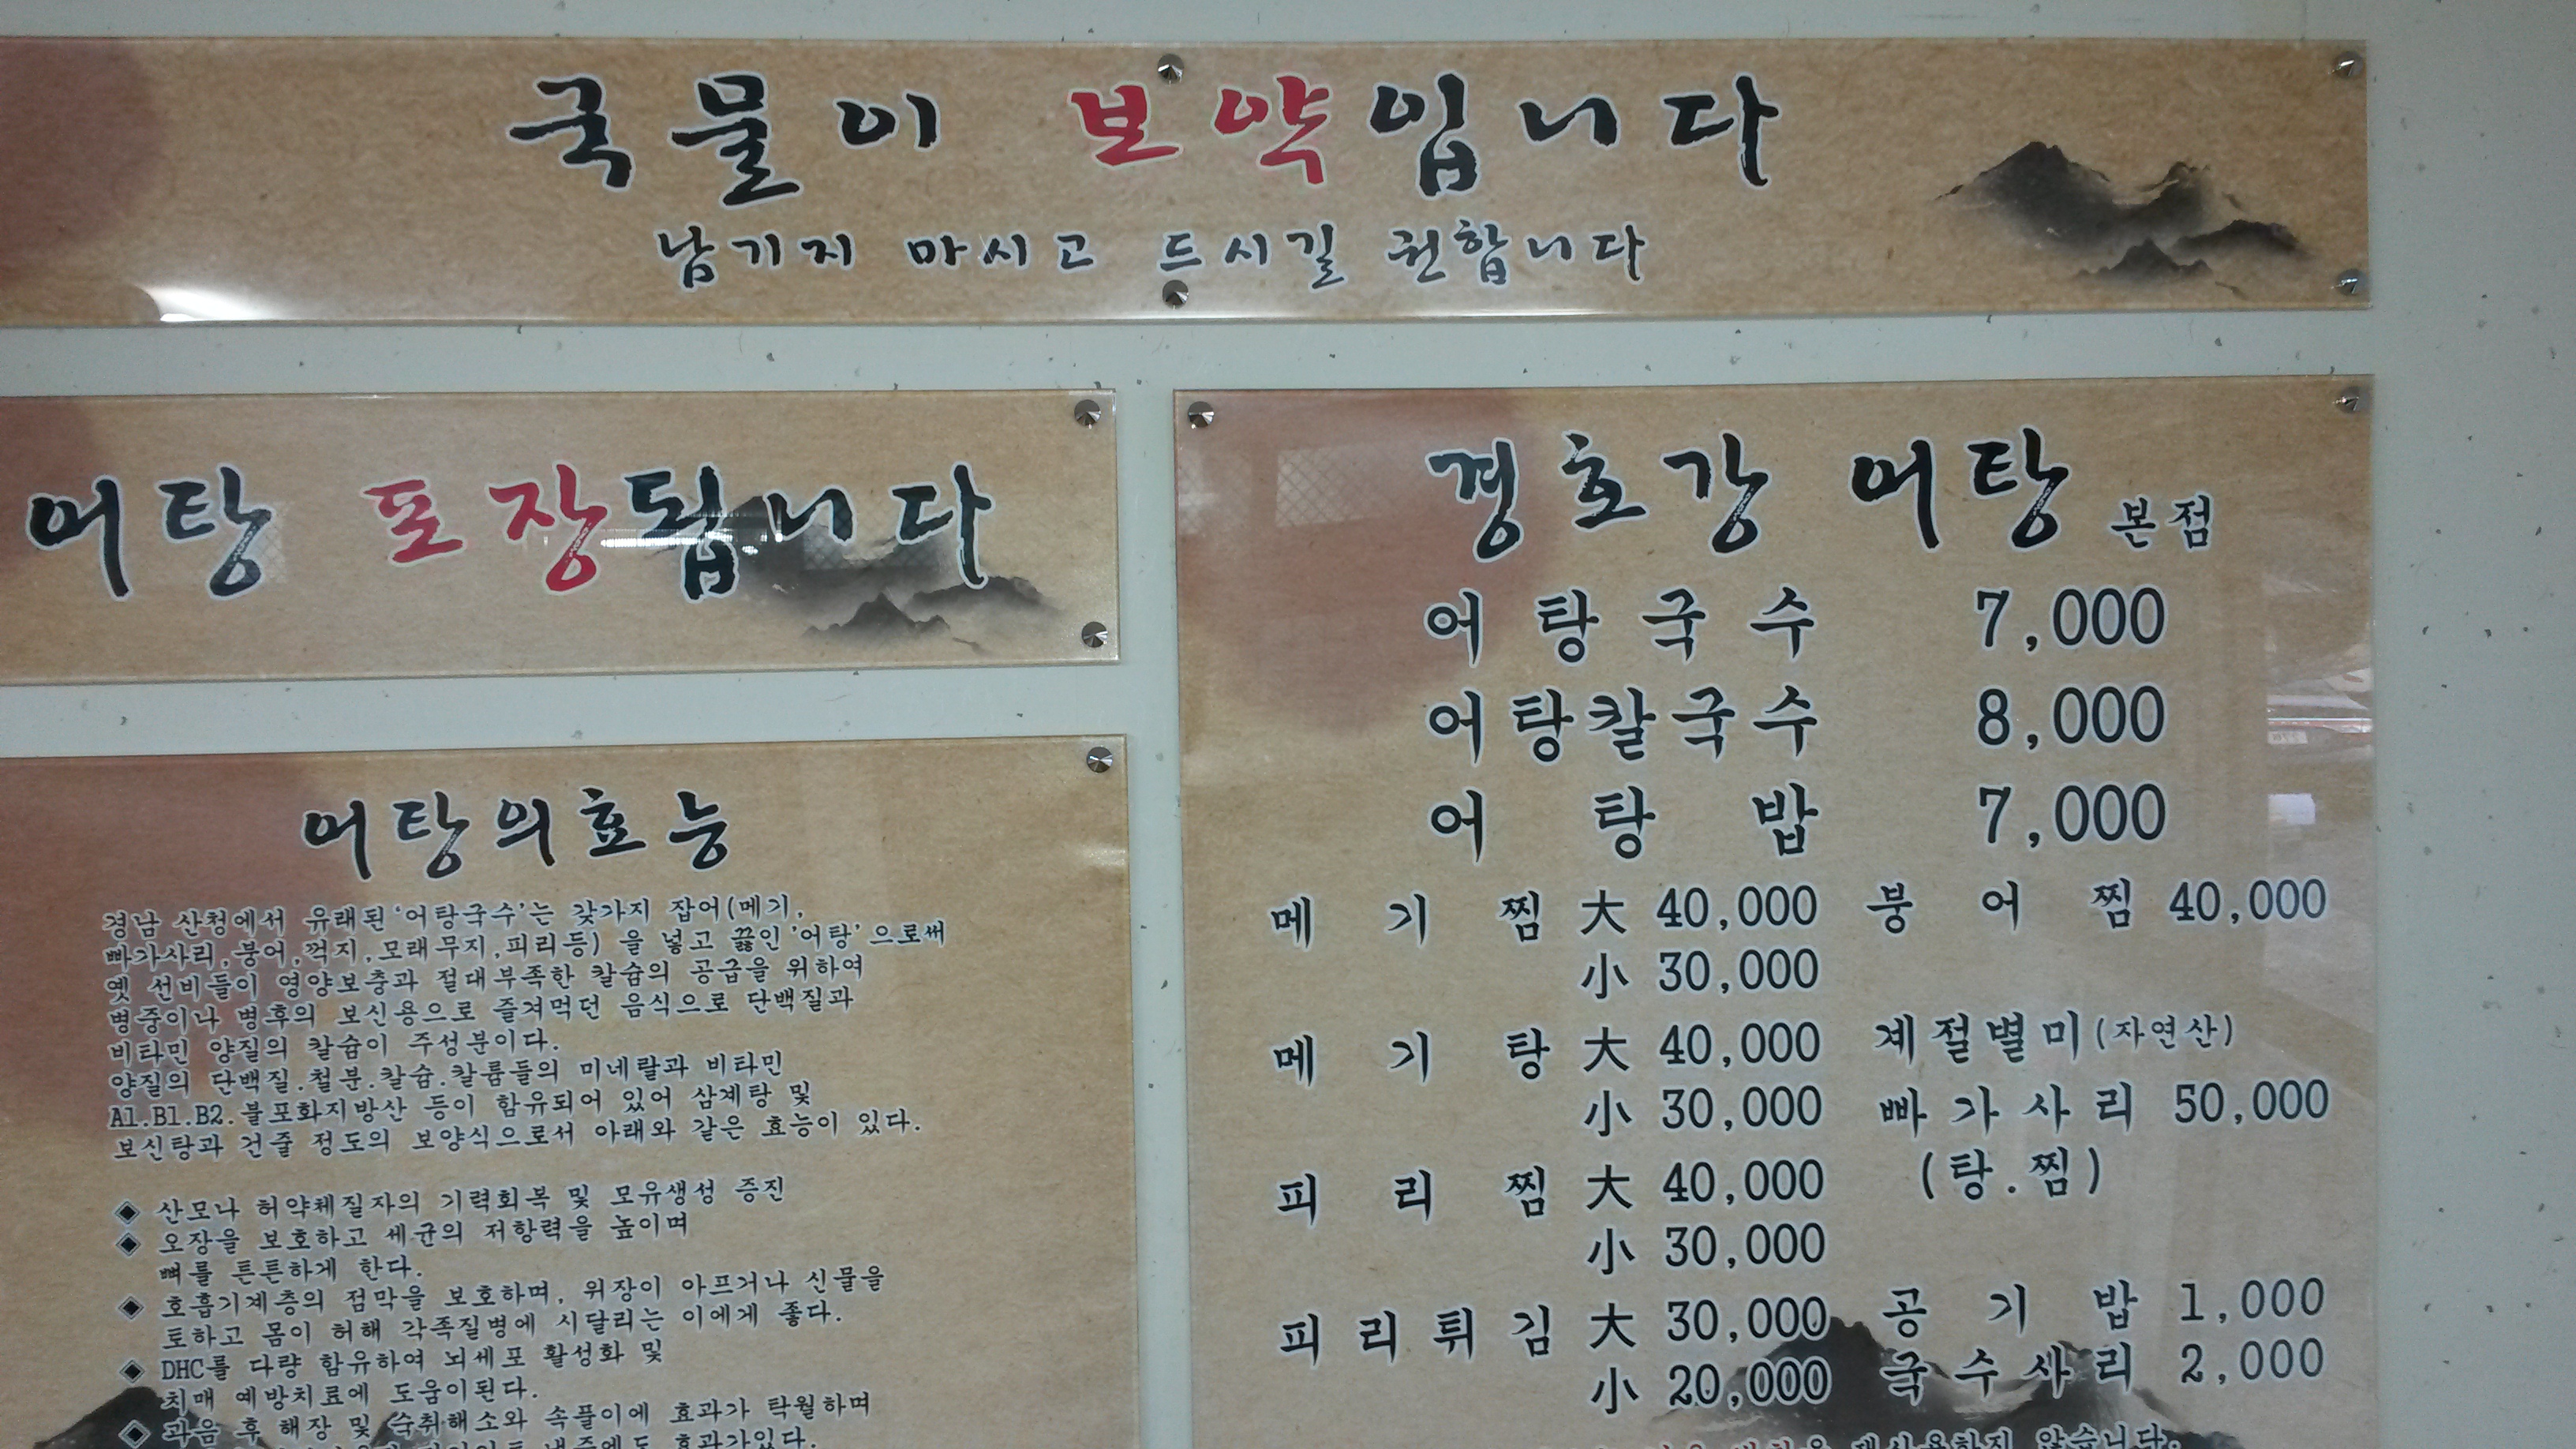 국물이 보약입니다
남기지 마시고 드시길 권합니다
어탕 포장됩니다
어탕의효능
경남 산청에서 유래된 '어탕국수'는 갖가지 잡어(메기,
빠가사리,붕어,꺽지,모래무지,피리등) 을 넣고 끓인 '어탕' 으로써
옛 선비들이 영양보충과 절대부족한 칼슘의 공급을 위하여
병중이나 병후의 보신용으로 즐겨먹던 음식으로 단백질과
비타민 양질의 칼슘이 주성분이다.
양질의 단백질.철분.칼슘.칼륨들의 미네랄과 비타민
A1.B1.B2.불포화지방산 등이 함유되어 있어 삼계탕 및
보신탕과 건줄 정도의 보양식으로서 아래와 같은 효능이 있다.
◈ 산모나 허약체질자의 기력회복 및 모유생성 증진
◈ 오장을 보호하고 세균의 저항력을 높이며
뼈를 튼튼하게 한다.
◈ 호흡기계층의 점막을 보호하며, 위장이 아프거나 신물을
토하고 몸이 허해 각족질병에 시달리는 이에게 좋다.
◈ DHC를 다량 함유하여 뇌세포 활성화 및
치매 예방치료에 도움이된다.
◈ 과음 후 해장 및 숙취해소와 속풀이에 효과가 탁월하며
효과가있다.
경호강 어탕 본점
어탕국수 7,000
어탕칼국수 8,000
어탕밥 7,000
메기찜 大 40,000 붕어찜 40,000
小 30,000
메기탕 大 40,000 계절별미(자연산)
小 30,000 빠가사리 50,000
피리찜 大 40,000 (탕.찜)
小 30,000
피리튀김 大 30,000 공기밥 1,000
小 20,000 국수사리 2,000
않습니다.